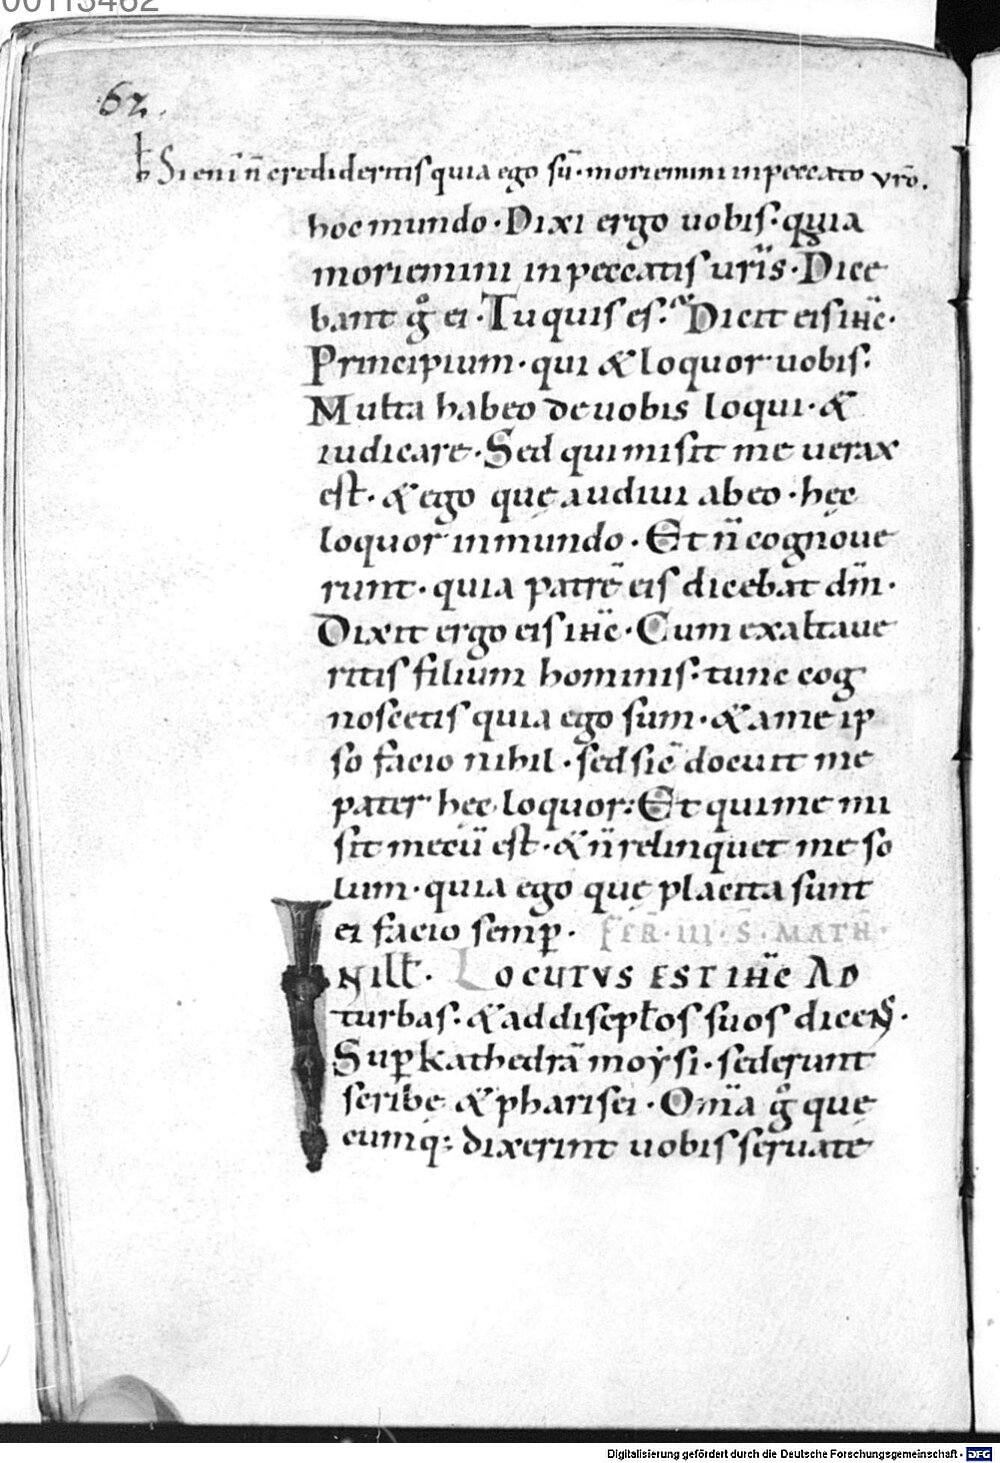 00113462
62.
Si eni n̄ credideritis quia ego sū· moriemini in peccato vr̄o.
hoc mundo· Dixi ergo uobis· quia
moriemini in peccatis ur̄is· Dice
bant g̊ ei· Tu quis es? Dicit eis ih̄c·
Principium· qui & loquor uobis·
Multa habeo de uobis loqui· &
iudicare· Sed qui misit me uerax
est· & ego quę audiui ab eo· hęc
loquor in mundo· Et n̄ cognoue
runt· quia patrē eis dicebat dm̄·
Dixit ergo eis ih̄c· Cum exaltaue
ritis filium hominis· tunc cog
noscetis quia ego sum· & a me ip
so facio nihil· sed sic̄ docuit me
pater hęc loquor· Et qui me mi
sit mecū est· & n̄ relinquet me so
lum· quia ego quę placita sunt
ei facio semꝑ· FER̄· III· S̄· MATH̄·
IN ill̄t· LOCUTVS EST IH̄C AD
turbas· & ad discipl̄os suos dicens·
Suꝑ kathedrā moysi· sederunt
scribę & pharisei· Om̄ia g̊ quę
cumq; dixerint uobis seruate
Digitalisierung gefördert durch die Deutsche Forschungsgemeinschaft - DFG